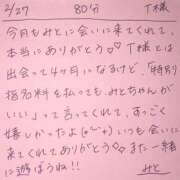 2/27 80分 T様
今月もみとに会いに来てくれて、
本当にありがとう♡♡ T様とは
出会って4ヶ月になるけど、「特別
指名料払っても、みとちゃんが
いい」って言ってくれて、すっごく
嬉しかったよ(о´∨`о) いつも会いに
来てくれてありがとう♡♡ また一緒
に遊ぼうね!!
みと